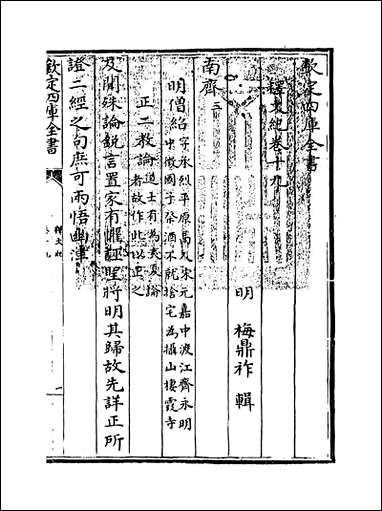 欽定四庫全書
釋文紀卷十九
明 梅鼎祚 輯
南齊三
明僧紹字承烈平原鬲人宋元嘉中渡江齊永明
中徵國子祭酒不就捨宅為攝山棲霞寺
正二教論道士有為夷夏論
者故作此以正之
及聞殊論銳言置家有懼誣聖將明其歸故先詳正所
證二經之句庶可兩悟幽津
欽定四庫全書
釋文紀
卷十九
一